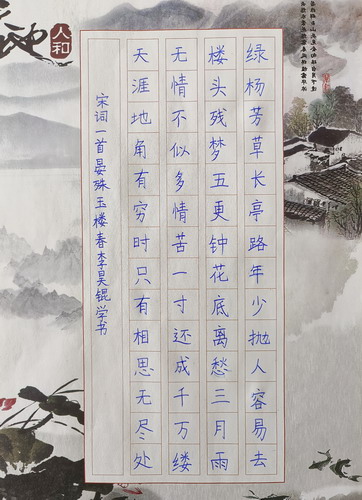 绿杨芳草长亭路年少抛人容易去
楼头残梦五更钟花底离愁三月雨
无情不似多情苦一寸还成千万缕
天涯地角有穷时只有相思无尽处
宋词一首晏殊玉楼春李昊锟学书
人和